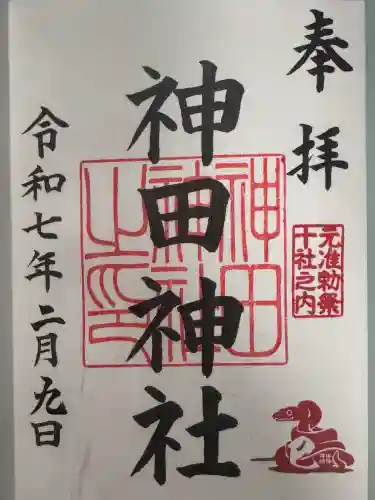 奉拝
元准勅祭
十社之内
神田神社
神田
神社
之印
令和七年二月九日